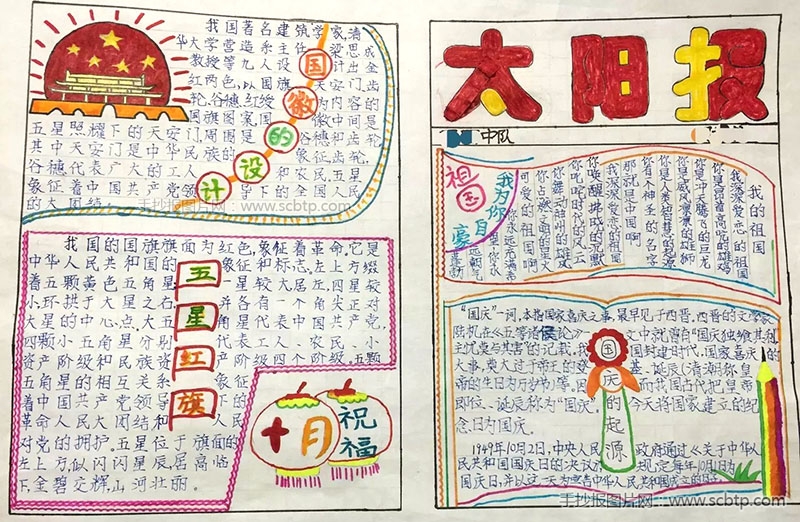 我国著名建筑学家、清
华大学营造系主任 梁思成
教授等九人设 计出金
红两色，以国旗、天安门、齿
轮、谷穗、红绶 为内容的
国旗图案，国 徽中间是
五星照耀下的天安门，周围是 谷穗和齿轮，
其中天安门是中华民族的 象征，齿轮，
谷穗代表广大的工人 和农民，五星
象征着中国共产党领 导下的全国人民
的大团结。
国徽的设计
手抄报图片网：www.scbtp.com
我国的国旗旗面为红色，象征着革命。它是
中华人民共和国的 象征和标志。左上方缀
着五颗黄色五角星， 一星较大居左，四星较
小环拱于大星之右， 并各有一个角尖正对
大星的中心点。大五 角星代表中国共产党，
四颗小五角星分别 代表工人、农民、小
资产阶级和民族资 产阶级四个阶级。五颗
五角星的相互关系 象征
着中国共产党领导 下的
革命人民大团结和 人民
对党的拥护。五星位于旗面的
左上方似闪闪星辰居高临
下，金碧交辉，山河壮丽。
五星红旗
十月
祝福
太阳报
中队
我的祖国
我深深爱恋的祖国
你是昂首高吭的雄鸡
你是冲天腾飞的巨龙
你是威风凛凛的雄狮
你是人类智慧的起源
你有一个神圣的名字
那就是中国啊
我深深爱恋的祖国
你唤醒拂晓的沉默
你叱咤时代的风云
你舞动神州的雄风
你占领文明的星火
可爱的祖国啊
我为你自豪
你永远充满希
祖国
“国庆”一词，本指国家喜庆之事，最早见于西晋。西晋的文学家
陆机在《五等诸侯论》一 文中就曾有“国庆独飨其利，
主忧莫与其害”的记载。我 国封建时代，国家喜庆的
大事，莫大过于帝王的登 基、诞辰（清朝称皇
帝的生日为万岁节）等。因 而我国古代把皇帝
即位、诞辰称为“国庆”。 今天将国家建立的纪
念日为国庆。
1949年10月2日，中央人民 政府通过《关于中华人
民共和国国庆日的决议》 规定每年10月1日为
国庆日，并以这一天为宣告中华人民共和国成立的日子。
国庆的起源
手抄报图片网：www.scbtp.com